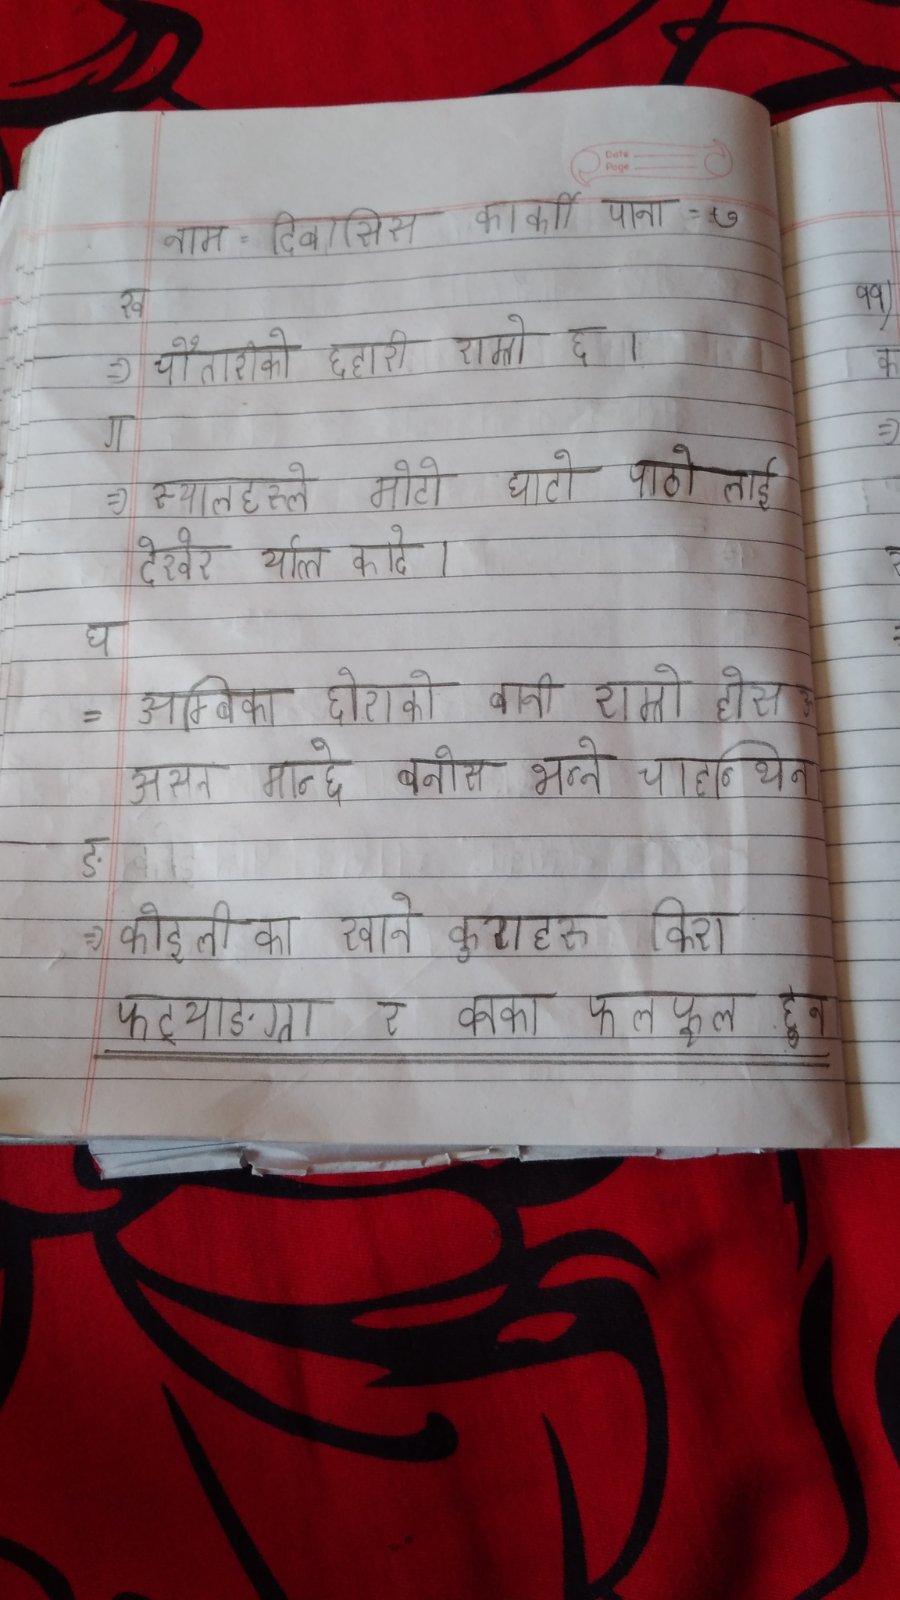 Date
Page
नाम = दिवासिस कार्की पाना = ५७
ख
⇒ चौँतारीको छहारी राम्रो छ ।
ग
⇒ स्यालहरुले मोटो घाटो पाठो लाई
देखेर र्याल काढे ।
घ
= अम्बिका छोराको बानी राम्रो होस
असल मान्छे बनोस भन्ने चाहन्थिन
ङ
⇒ कोइली का खाने कुराहरु किरा
फट्याङग्रा र वनका फलफूल हुन
११)
क
⇒